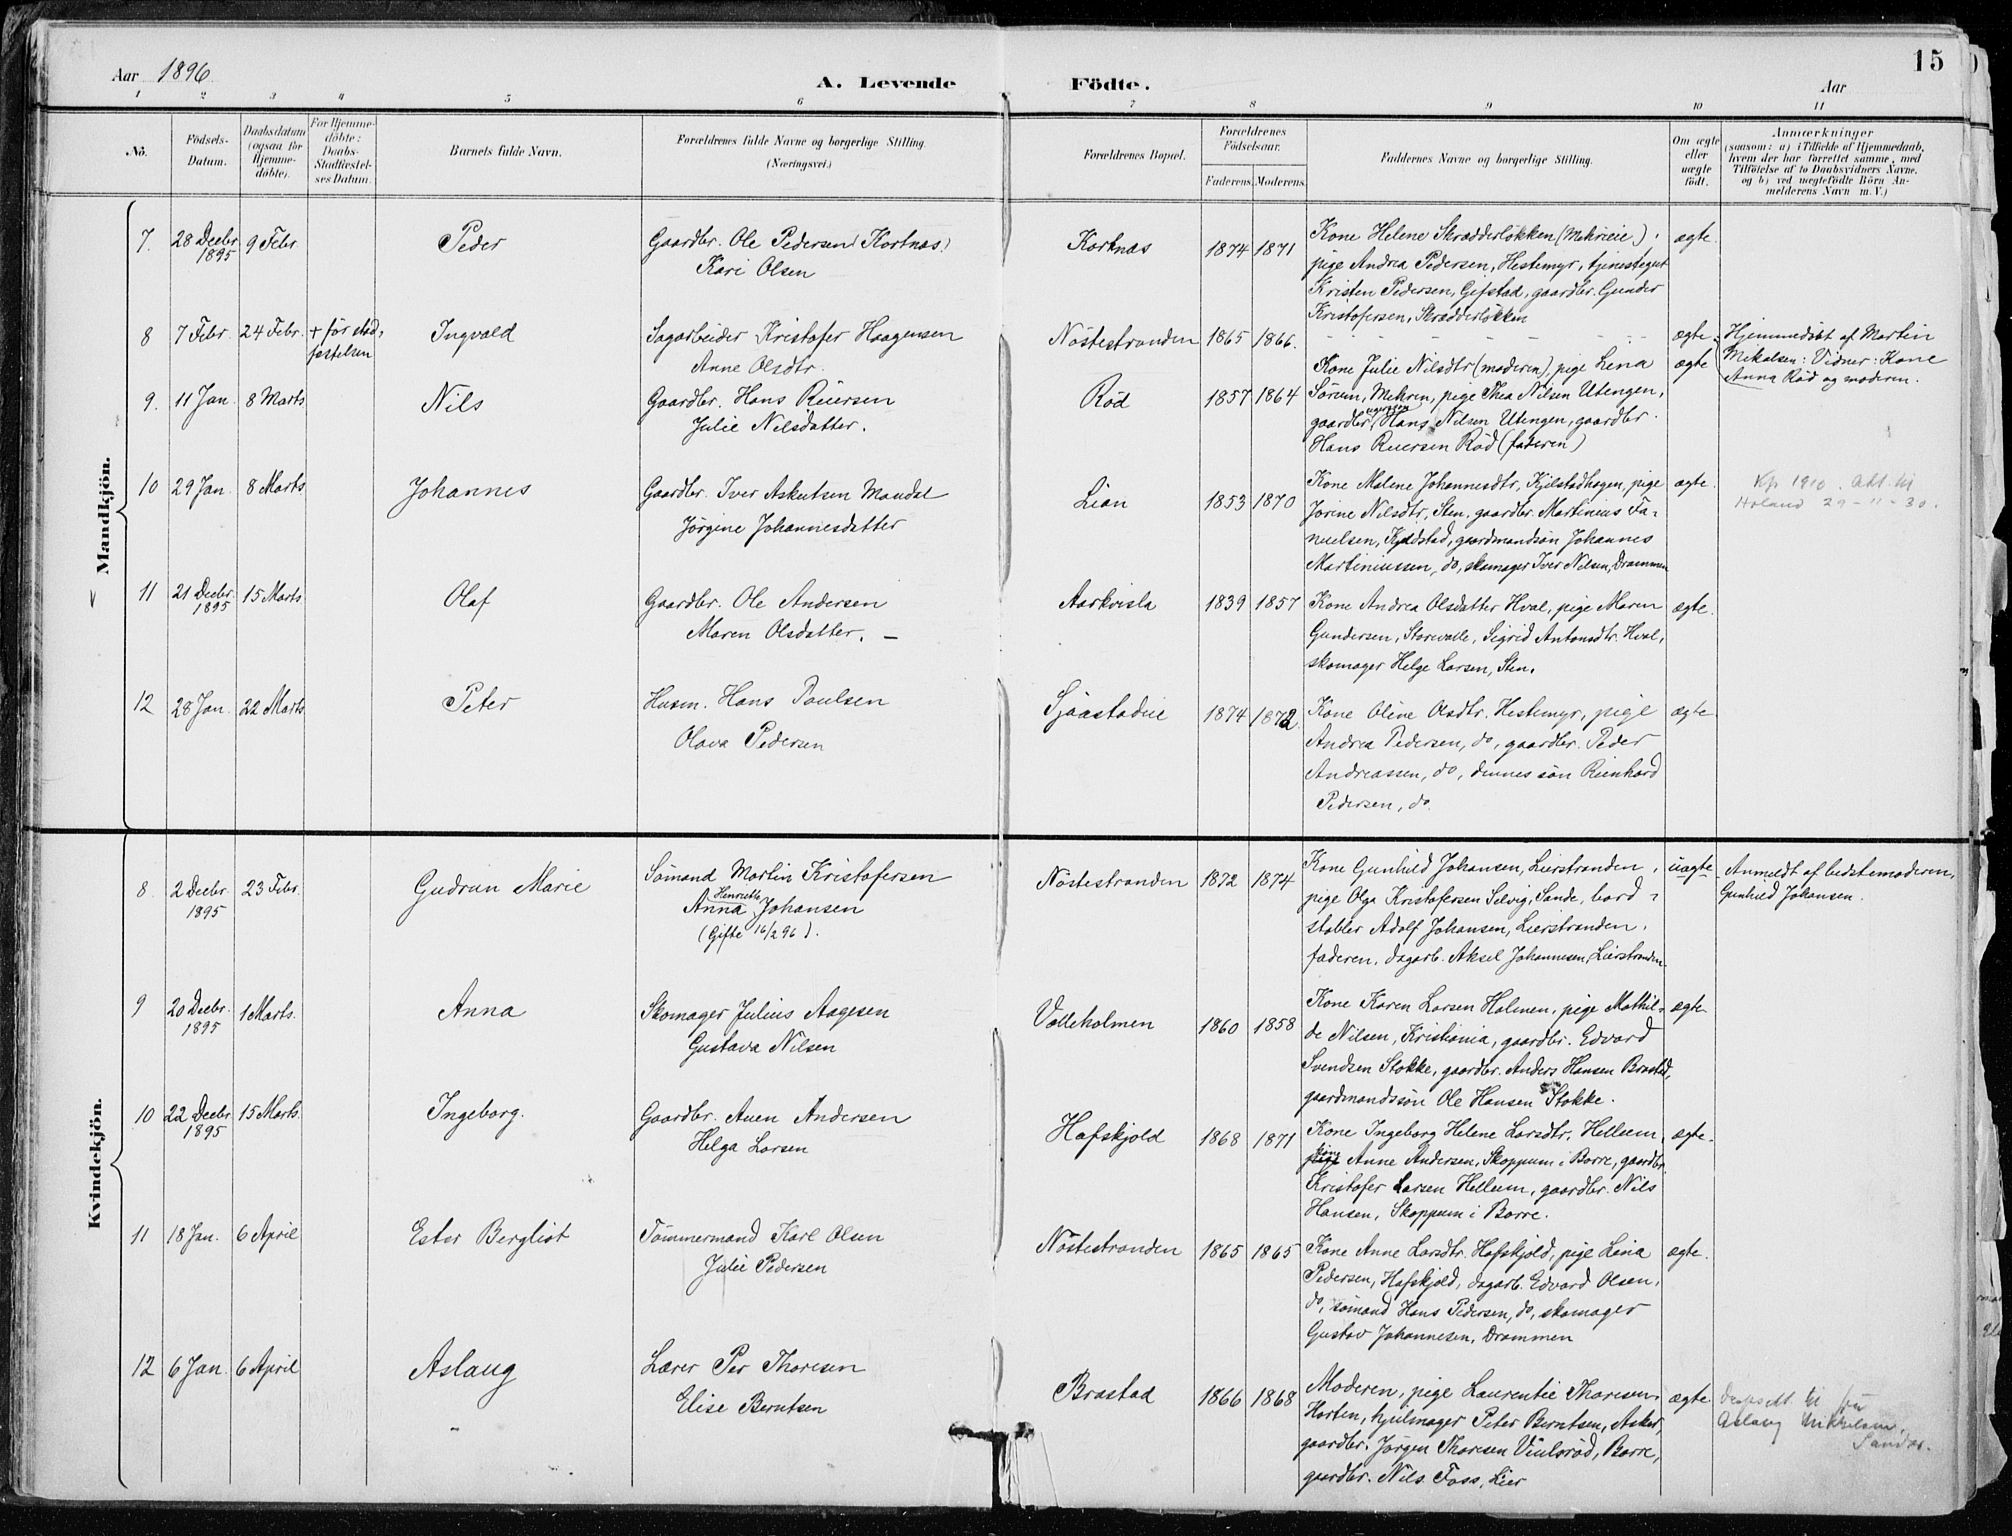 Aar 1896 A. Levende Födte. Aar 15
1 2 3 4 5 6 7 8 9 10 11
No. Födsels-Datum. Daabsdatum (ogsaa for Hjemme-döbte). For Hjemme-döbte: Daabs-Stadfæstel-ses Datum. Barnets fulde Navn. Forældrenes fulde Navne og borgerlige Stilling. (Næringsvei.) Forældrenes Bopæl. Forældrenes Födselsaar. Faderens. Moderens. Faddernes Navne og borgerlige Stilling. Om ægte eller uægte födt. Anmærkninger (saasom: a) i Tilfælde af Hjemmedaab, hvem der har forrettet samme, med Tilföielse af to Daabsvidners Navne, og b) ved uægtefödte Börn An-melderens Navn m. V.)
Mandkjön.
7. 28 Decbr. 1895 9 Febr. Peder Gaardbr. Ole Pedersen (Kortnæs) Kortnæs 1874 1871 Kone Helene Skrædderløkken (Mehreneie), ægte.
Kari Olsen pige Andrea Pedersen, Hestemyr, tjenestegut
Kristen Pedersen, Gifstad, gaardbr. Gunder
Kristofersen, Skrædderløkken
8 7 Febr. 24 Febr. + før stad- Ingvald Sagarbeider Kristofer Haagensen Nöstestranden 1865 1866. ægte. Hjemmedöbt af Martin
fæstelsen Anne Olsdtr. Mikalsen: Vidner: Kone
Anna Röd og moderen.
9. 11 Jan. 8 Marts Nils Gaardbr. Hans Reiersen Röd 1857 1864 Kone Julie Nilsdtr (moderen), pige Lena ægte
Julie Nilsdatter. Sørum, Mehren, pige Thea Nilsen Utengen,
gaardbr. ugift Hans Nilsen Utengen, gaardbr.
Hans Reiersen Röd (faderen)
10 29 Jan. 8 Marts Johannes Gaardbr. Iver Askeutsen Maudal Lian 1853 1870 Kone Malene Johannesdtr, Kjelstadhagen, pige ægte. Kp 1910. Att. til
Jørgine Johannesdatter Jorine Nilsdtr, Sten, gaardbr. Martineus Fa- Holand 29-11-30.
nuelsen, Kjelstad, gaardmandsön Johannes
Martiniussen, do, skomager Iver Nilsen, Drammen
11 21 Decbr. 1895 15 Marts Olaf Gaardbr. Ole Andersen Aarkvisla 1839 1857 Kone Andrea Olsdatter Hval, pige Maren ægte.
Maren Olsdatter. — Gundersen, Storevalle, Sigrid Antonsdtr. Hval,
skomager Helge Larsen, Sten.
12 28 Jan. 22 Marts Peter Husm. Hans Paulsen Sjåastadeie 1874 1872. Kone Oline Olsdtr. Hestemyr, pige ægte
Olava Pedersen Andrea Pedersen, do, gaardbr. Peder
Andreassen, do, dennes sön Reinhard
Pedersen, do.
Kvindekjön.
8 2 Decbr. 1895 23 Febr. Gudrun Marie Sömand Martin Kristofersen Nöstestranden 1872 1874 Kone Gunhild Johansen, Lierstranden, uægte Anmeldt af bedstemoderen,
Anna Henriette Johansen pige Olga Kristofersen Selvig, Sande, bord- Gunhild Johansen.
(Gifte 16/2 96). stabler Adolf Johansen, Lierstranden.
faderen, dagarb. Aksel Johannesen, Lierstranden.
9 20 Decbr. 1895 1 Marts. Anna Skomager Julius Aagesen Valleholmen 1860 1858 Kone Karen Larsen Holmen, pige Mathil- ægte
Gustava Nilsen de Nilsen, Kristiania, gaardbr. Edvard
Svendsen Stokke, gaardbr. Anders Hansen Brastad,
gaardmandssön Ole Hansen Stokke.
10 22 Decbr. 1895 15 Marts. Ingeborg. Gaardbr. Auen Andersen Hafskjold 1868 1871 Kone Ingeborg Helene Larsdtr. Hellum. ægte.
Helga Larsen pige Anne Andersen, Skoppum i Borre, gaardbr.
Kristofer Larsen Hellum, gaardbr. Nils
Hansen, Skoppum i Borre.
11 18 Jan. 6 April Ester Bergliot Tömmermand Karl Olsen Nöstestranden 1865 1865 Kone Anne Larsdtr. Hafskjold, pige Lina ægte.
Julie Pedersen Pedersen, Hafskjold, dagarb. Edvard Olsen,
do, sömand Hans Pedersen, do, skomager
Gustav Johannesen, Drammen
12 6 Jan. 6 April Aslaug Lærer Per Thoresen Brastad 1866 1868 Moderen, pige Laurentie Thoresen, ægte Daabsatt. til fru
Elise Berntsen Horten, hjulmager Peter Berntsen, Asker, Aslaug Mikkelsen,
gaardbr. Jørgen Thoresen Viulsröd, Borre, Sandar.
gaardbr. Nils Foss, Lier